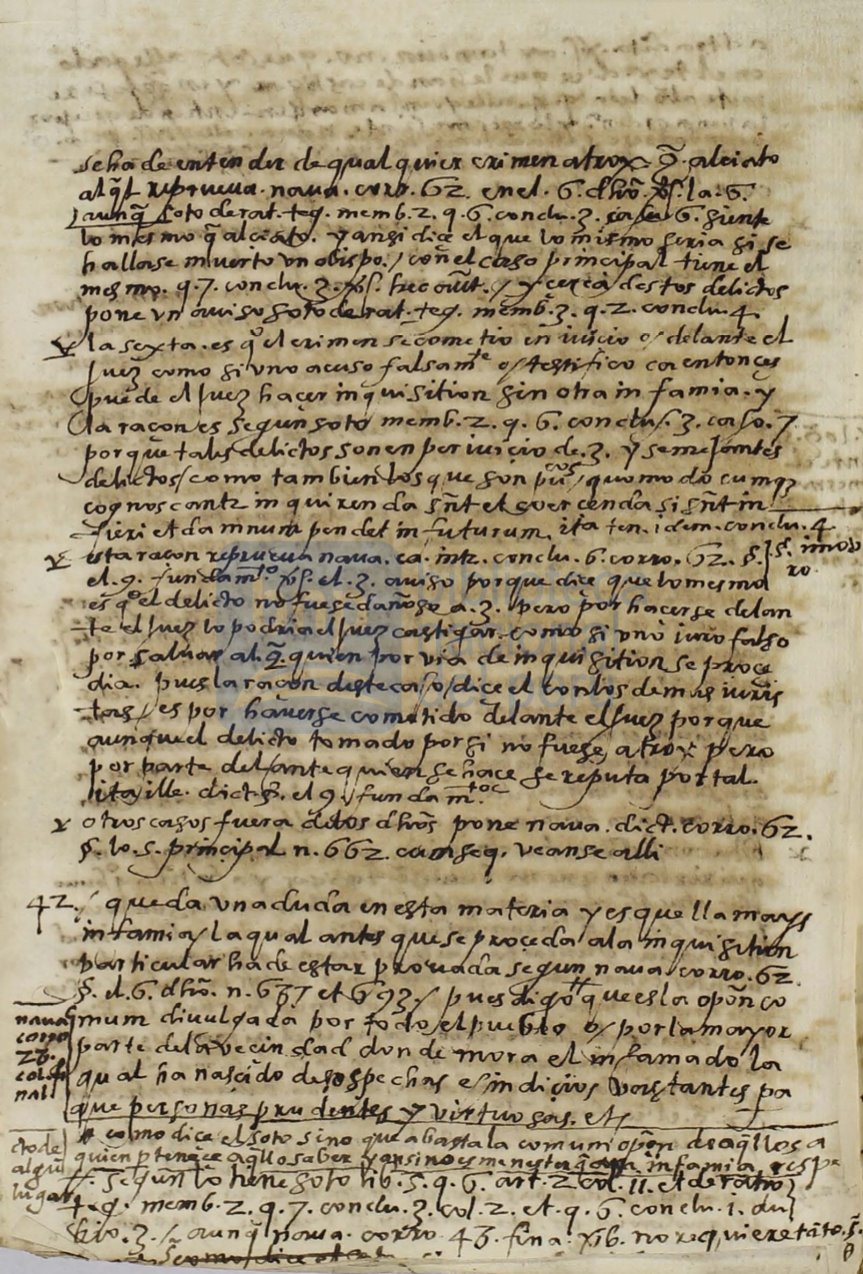 se ha de entender de qualquier crimen atrox. alciato
al q̃l reprueua. naua. corro. 62. en el. 6. dhõ. la. 6.
aunq̃ soto de rat. teg. memb. 2. q. 6. conclu. 3. caso 6. siente
lo mesmo q̃ alciato. y ansi dice el que lo mismo seria si se
hallase muerto vn obispo. / con el caso principal tiene el
mesmo. q. 7. conclu. 3. / y cerca destos delictos
pone vn auiso soto de rat. teg. memb. 3. q. 2. conclu. 4.
la sexta. es q̃ el crimen se cometio en iuicio o / delante el
juez como si vno acuso falsamẽte o / testifico ca entonces
puede el juez hacer inquisition sin otra infamia. y
la raçon es segun soto memb. 2. q. 6. conclus. 3. caso. 7
porque tales delictos son en periuicio de. 3. y semejantes
delictos / como tambien los que son / quo modo cumq3
cognoscantr inquirenda sñt et coercenda si sñt in
fieri et damnum pendet in futurum. ita ten. idem. conclu. 4
esta raçon reprueua naua. ca. intr. conclu. 6. corro. 62. §.
§. in nou
ro.
el. 9. fundamto. el. 3. auiso porque dice que lo mesmo
es q̃ el delicto no fuese dañoso a. 3. pero por hacerse delan
te el juez lo podria el juez castigar. como si vno iuro falso
por saluar al. q̃ quien por via de inquisition se proce
dia. pues la raçon deste caso / dice el con los demas iuris
tas / es por hauerse cometido delante el juez porque
aunque el delicto tomado por si no fuese atrox pero
por parte del ante quien se hace se reputa por tal.
ita ille. dict. §. el 9. fundamto.
otros casos fuera delos dhõs pone naua. dict. corro. 62.
§. lo. 5. principal n. 662. cum seq. veanse alli
42. / queda vna duda en esta materia y es que llamays
infamia / la qual antes que se proceda a la inquisition
particular ha de estar prouada segun naua. corro. 62.
§. el. 6. dhõ. n. 637 et 693. / pues digo que es la opõn co
mum diuulgada por todo el pueblo o / por la mayor
parte dela vecindad donde mora el infamado la
qual ha nascido de sospechas e / indiçios bastantes pa
que personas prudentes y virtuosas. etc
naua
corro
26.
col. fi
nal
como dice el soto sino que abasta la comun opõn de aq̃llos a
quien pteneçe aq̃llo saber y ansi no es menester infamia respe
cto de
algun
lugar
segun lo tiene soto lib. 5. q. 6. art. 2 col. 11. et de ratio
teg. memb. 2. q. 7. conclu. 3. col. 2. et. q. 6. conclu. 1. du
bio. 3. / aunq̃ naua. corro. 43. fina. no requiere tãto. §.